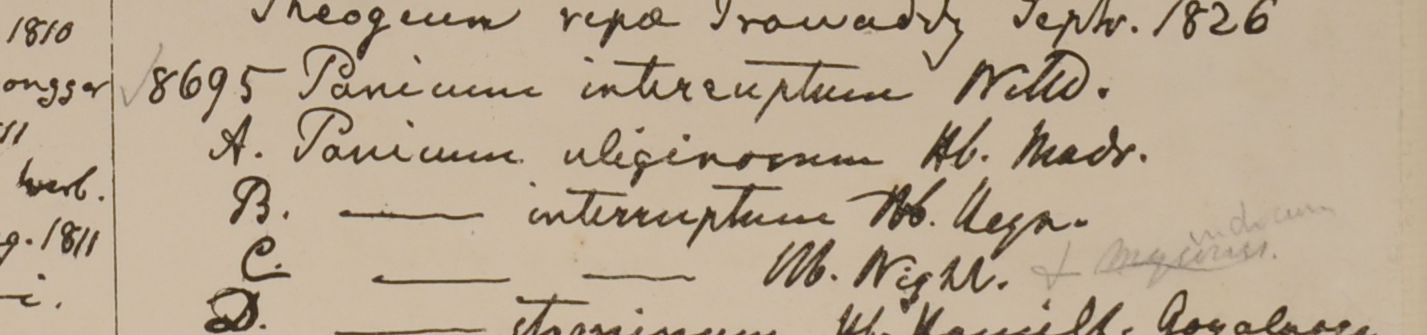 1810
ongger
11
herb.
g. 1811
i.
Theogeum ripæ Irawaddy Septr. 1826
8695 Panicum interruptum Willd.
A. Panicum uliginosum Hb. Madr.
B. — interruptum Hb. Heyn.
C. — — Hb. Wight. + indicum
D. — Hb. Hamilt.